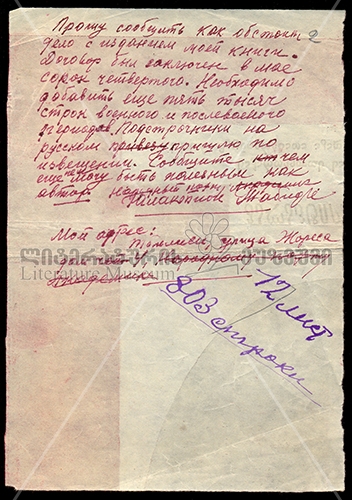 Прошу сообщить как обстоит 2
дело с изданием моей книги.
Договор был заключен в мае
сорок четвертого. Необходимо
добавить еще пять тысяч
строк военного и послевоенного
периодов. Подстрочники на
русском пришлю по
извещении. Сообщите чем
еще могу быть полезным как
автор
Галактион Табидзе
Мой адрес:
Тбилиси, улица Жореса
ლიტერატურის მუზეუმი
Literature Museum
12 лист
803 строки